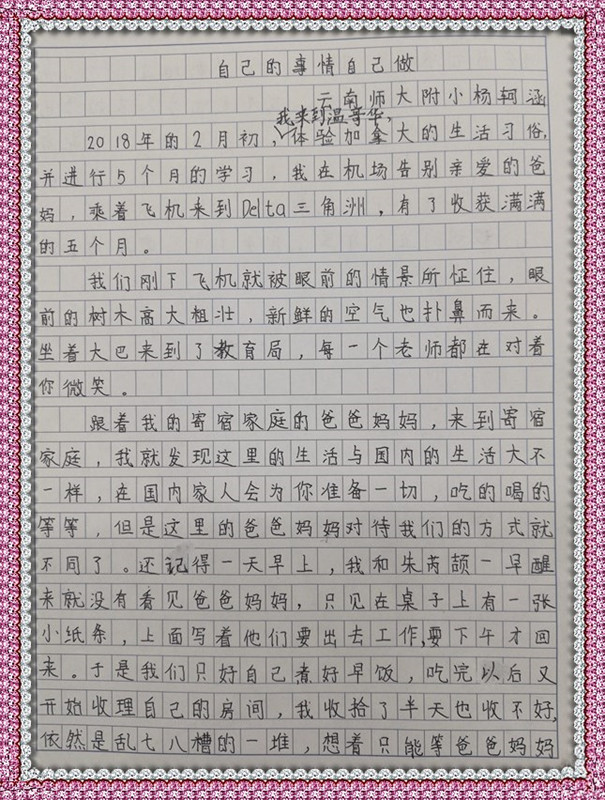 自己的事情自己做
云南师大附小杨轲涵
我来到温哥华，
2018年的2月初，体验加拿大的生活习俗，
并进行5个月的学习，我在机场告别亲爱的爸
妈，乘着飞机来到Delta三角洲，有了收获满满
的五个月。
我们刚下飞机就被眼前的情景所怔住，眼
前的树木高大粗壮，新鲜的空气也扑鼻而来。
坐着大巴来到了教育局，每一个老师都在对着
你微笑。
跟着我的寄宿家庭的爸爸妈妈，来到寄宿
家庭，我就发现这里的生活与国内的生活大不
一样，在国内家人会为你准备一切，吃的喝的
等等，但是这里的爸爸妈妈对待我们的方式就
不同了。还记得一天早上，我和朱芮颉一早醒
来就没有看见爸爸妈妈，只见在桌子上有一张
小纸条，上面写着他们要出去工作，要下午才回
来。于是我们只好自己煮好早饭，吃完以后又
开始收理自己的房间，我收拾了半天也收不好，
依然是乱七八糟的一堆，想着只能等爸爸妈妈